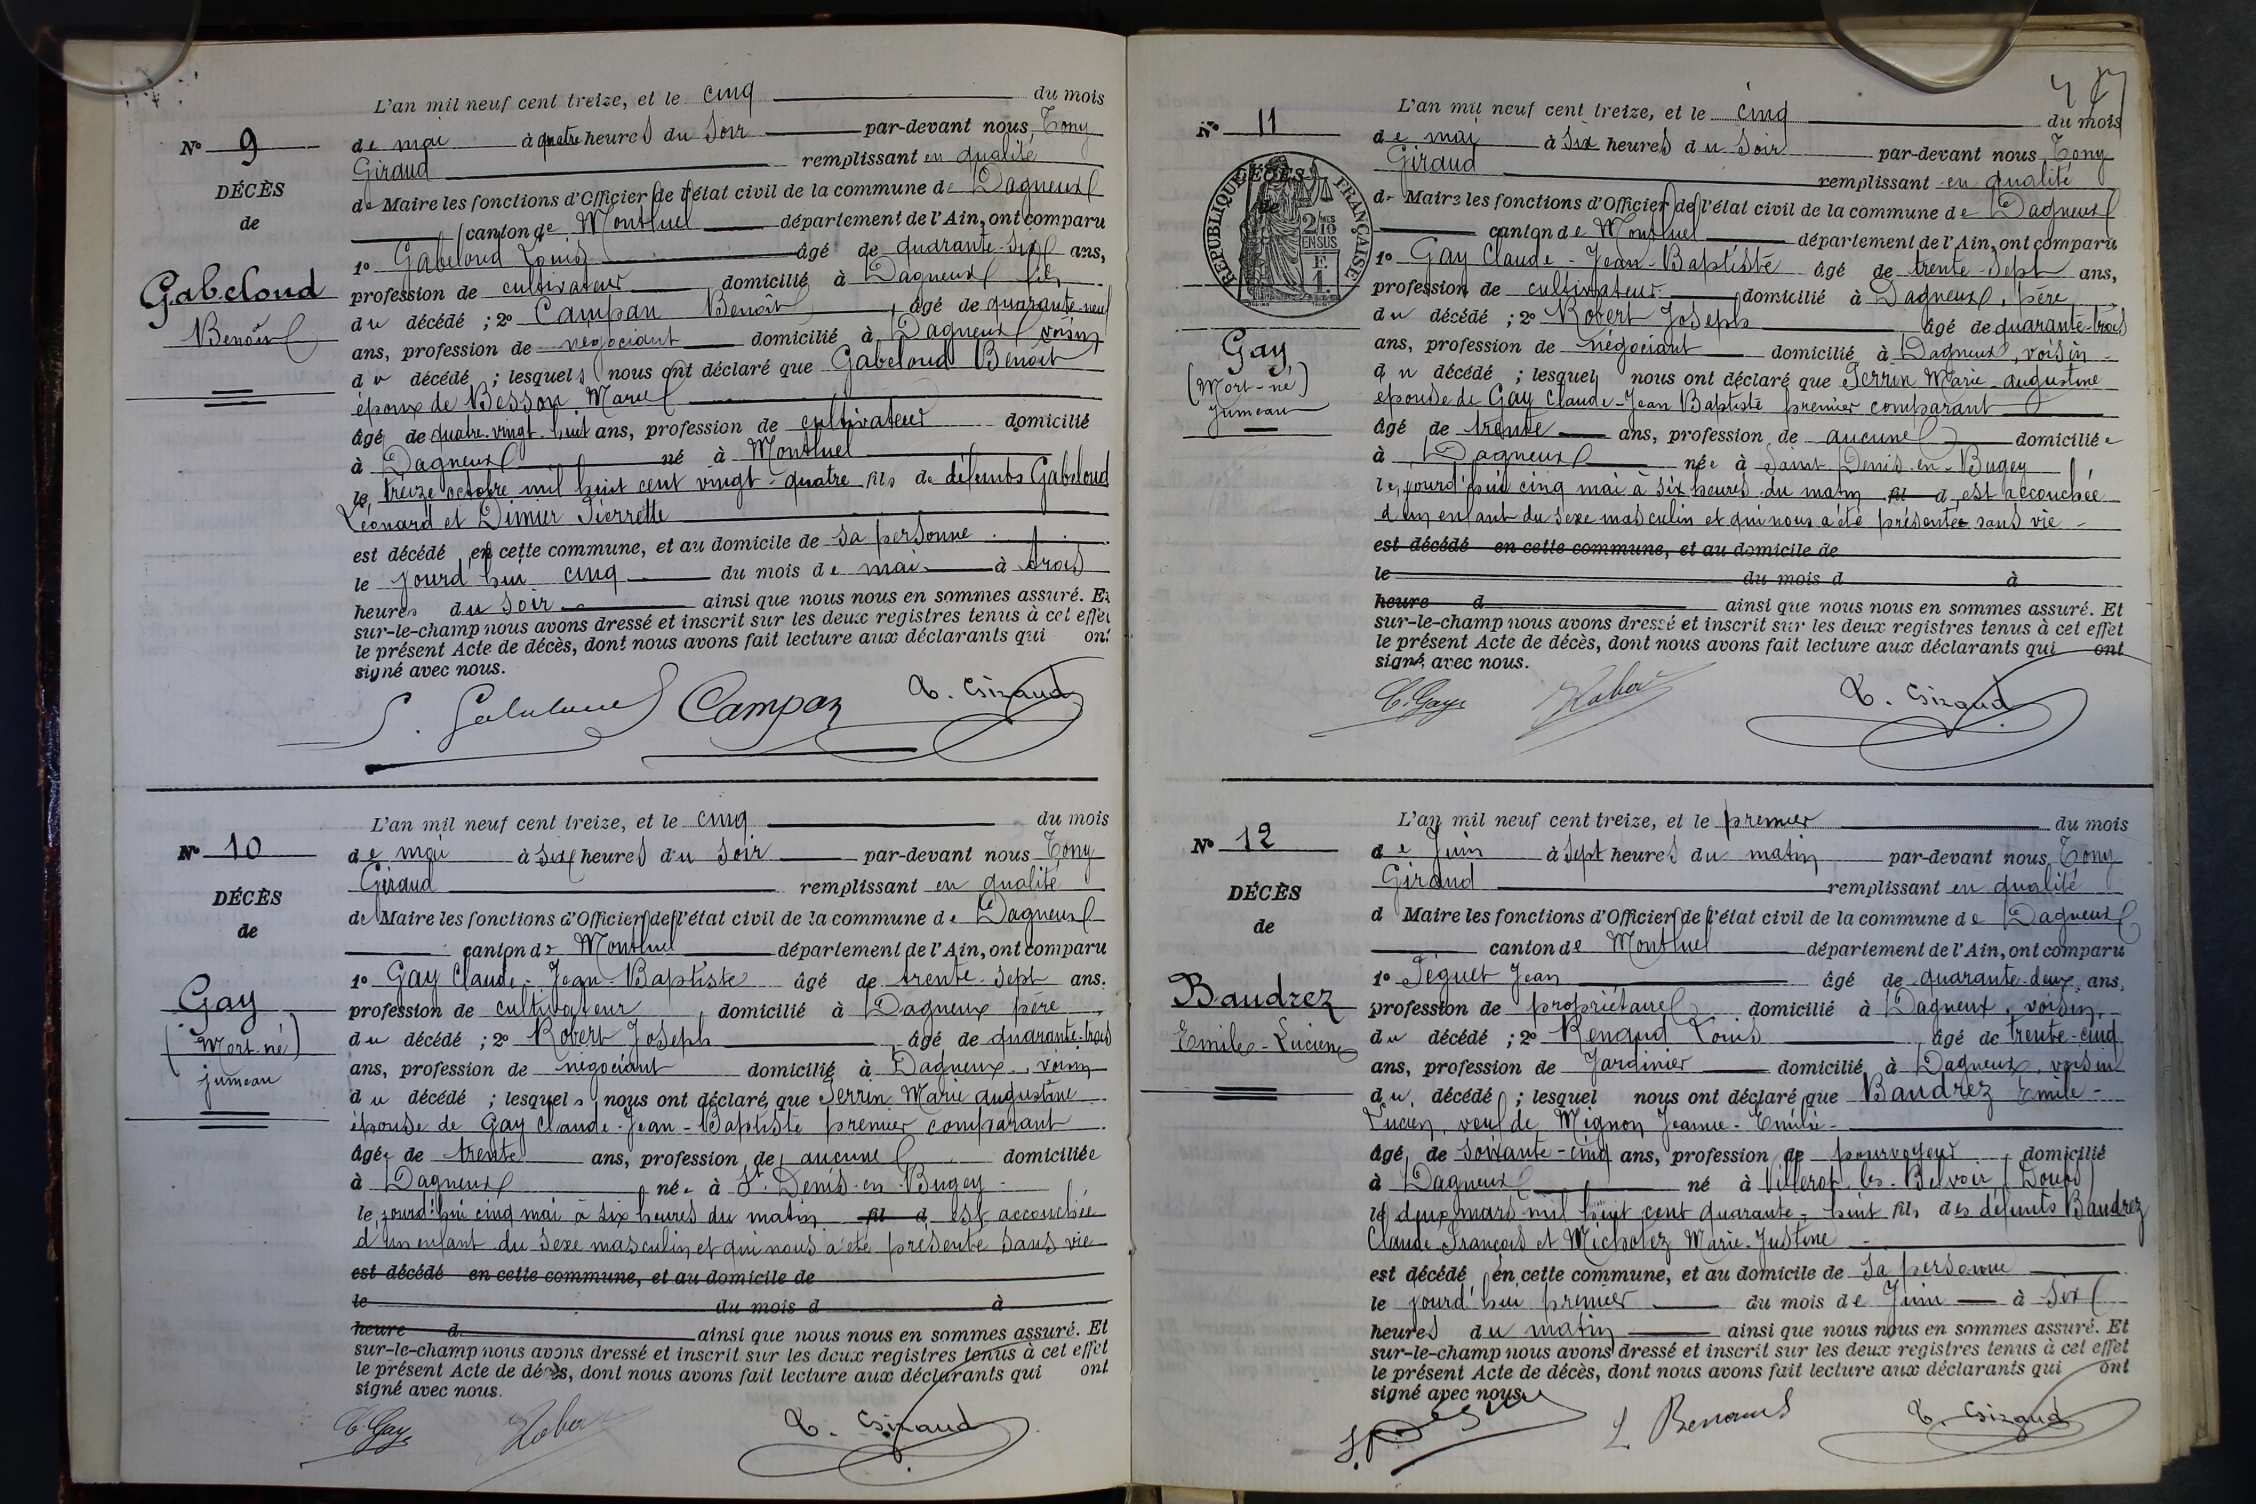 L'an mil neuf cent treize, et le cinq du mois
N° 9
de mai à quatre heures du soir par-devant nous, Tony
Giraud remplissant en qualité
DÉCÈS
de Maire les fonctions d'Officier de l'état civil de la commune de Dagneux
de
canton de Montluel département de l'Ain, ont comparu
1° Gabeloud Louis âgé de quarante-six ans,
Gabeloud
Benoît
profession de cultivateur domicilié à Dagneux fils
du décédé ; 2° Campan Benoît, âgé de quarante-neuf
ans, profession de négociant domicilié à Dagneux voisin
du décédé ; lesquels nous ont déclaré que Gabeloud Benoit
époux de Besson Marie
âgé de quatre-vingt-huit ans, profession de cultivateur domicilié
à Dagneux né à Montluel
le treize octobre mil huit cent vingt-quatre fils de défunts Gabeloud
Léonard et Dimier Pierrette
est décédé en cette commune, et au domicile de sa personne
le jourd'hui cinq du mois de mai à trois
heures du soir ainsi que nous nous en sommes assuré. Et
sur-le-champ nous avons dressé et inscrit sur les deux registres tenus à cet effet
le présent Acte de décès, dont nous avons fait lecture aux déclarants qui ont
signé avec nous.
Campan T. Giraud
L'an mil neuf cent treize, et le cinq du mois
N° 10
de mai à six heures du soir par-devant nous Tony
Giraud remplissant en qualité
DÉCÈS
de Maire les fonctions d'Officier de l'état civil de la commune de Dagneux
de
canton de Montluel département de l'Ain, ont comparu
1° Gay Claude-Jean-Baptiste âgé de trente-sept ans.
Gay
(Mort-né)
jumeau
profession de cultivateur, domicilié à Dagneux père
du décédé ; 2° Robert Joseph âgé de quarante-trois
ans, profession de négociant domicilié à Dagneux, voisin
du décédé ; lesquels nous ont déclaré que Perrin Marie augustine
épouse de Gay Claude-Jean-Baptiste premier comparant
âgée de trente ans, profession de aucune domiciliée
à Dagneux née à St Denis-en-Bugey
le jourd'hui cinq mai à six heures du matin fil d est accouchée
d'un enfant du sexe masculin et qui nous a été présenté sans vie
est décédé en cette commune, et au domicile de
le du mois d à
heure d ainsi que nous nous en sommes assuré. Et
sur-le-champ nous avons dressé et inscrit sur les deux registres tenus à cet effet
le présent Acte de décès, dont nous avons fait lecture aux déclarants qui ont
signé avec nous.
C. Gay Robert T. Giraud
L'an mil neuf cent treize, et le cinq du mois
N° 11
de mai à six heures du soir par-devant nous Tony
Giraud remplissant en qualité
DÉCÈS
RÉPUBLIQUE FRANÇAISE
2/10 MES
EN SUS
E
1
de Maire les fonctions d'Officier de l'état civil de la commune de Dagneux
canton de Montluel département de l'Ain, ont comparu
1° Gay Claude-Jean-Baptiste âgé de trente-sept ans,
profession de cultivateur domicilié à Dagneux, père
du décédé ; 2° Robert Joseph âgé de quarante-trois
Gay
(Mort-né)
jumeau
ans, profession de négociant domicilié à Dagneux, voisin
du décédé ; lesquels nous ont déclaré que Perrin Marie-augustine
épouse de Gay Claude-Jean Baptiste premier comparant
âgé de trente ans, profession de aucune domiciliée
à Dagneux née à Saint-Denis-en-Bugey
le, jourd'hui cinq mai à six heures du matin fil d est accouchée
d'un enfant du sexe masculin et qui nous a été présentée sans vie
est décédé en cette commune, et au domicile de
le du mois d à
heure d ainsi que nous nous en sommes assuré. Et
sur-le-champ nous avons dressé et inscrit sur les deux registres tenus à cet effet
le présent Acte de décès, dont nous avons fait lecture aux déclarants qui ont
signé avec nous.
C. Gay Robert T. Giraud
L'an mil neuf cent treize, et le premier du mois
N° 12
de Juin à sept heures du matin par-devant nous, Tony
Giraud remplissant en qualité
DÉCÈS
d Maire les fonctions d'Officier de l'état civil de la commune de Dagneux
de
canton de Montluel département de l'Ain, ont comparu
1° Péguet Jean âgé de quarante-deux, ans,
Baudrez
Emile-Lucien
profession de propriétaire domicilié à Dagneux, voisin
du décédé ; 2° Renaud Louis âgé de trente-cinq
ans, profession de Jardinier domicilié à Dagneux, voisin
du décédé ; lesquel nous ont déclaré que Baudrez Emile-
Lucien, veuf de Mignon Jeanne-Emilie-
âgé de soixante-cinq ans, profession de pourvoyeur, domicilié
à Dagneux né à Villerot-les-Belvoir (Doubs)
le deux mars mil huit cent quarante-huit fils des défunts Baudrez
Claude-François et Micholez Marie-Justine
est décédé en cette commune, et au domicile de sa personne
le jourd'hui premier du mois de Juin à six
heures du matin ainsi que nous nous en sommes assuré. Et
sur-le-champ nous avons dressé et inscrit sur les deux registres tenus à cet effet
le présent Acte de décès, dont nous avons fait lecture aux déclarants qui ont
signé avec nous.
L Renaud T. Giraud